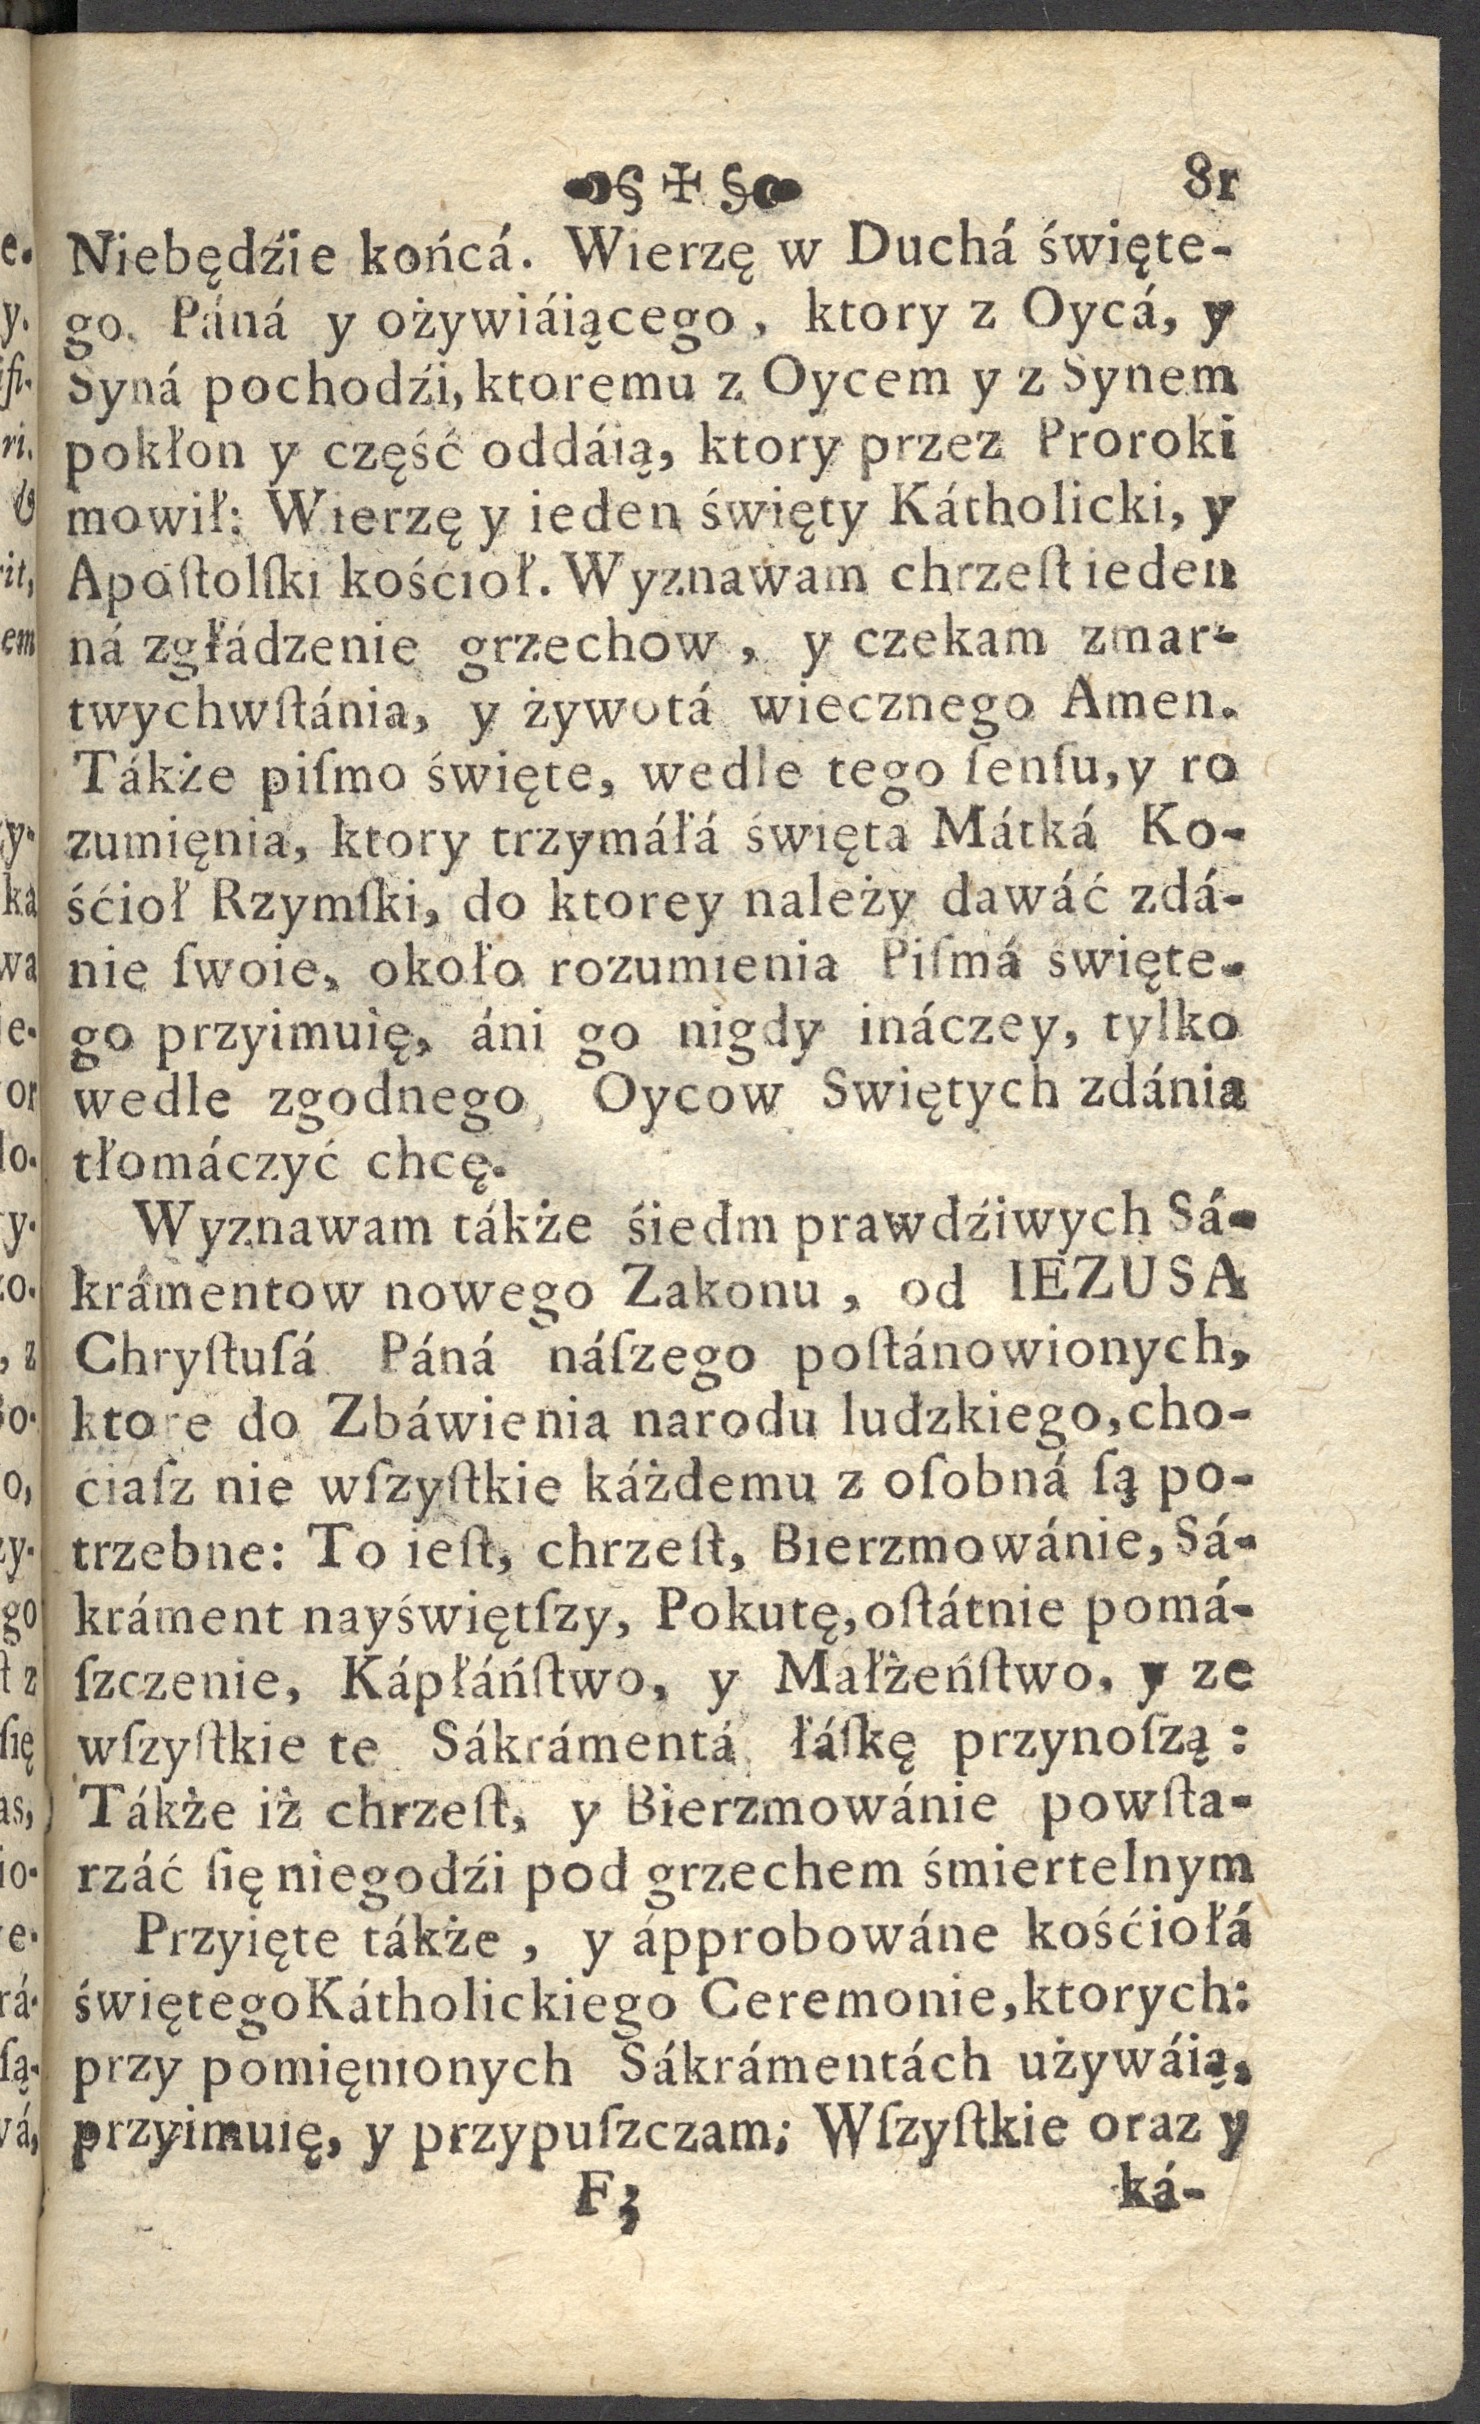 § ✠ § 81
Niebędźie końcá. Wierzę w Duchá święte-
go. Páná y ożywiáiącego, ktory z Oycá, y
Syná pochodźi, ktoremu z Oycem y z Synem
pokłon y część oddáią, ktory przez Proroki
mowił: Wierzę y ieden święty Kátholicki, y
Apoſtolſki kośćioł. Wyznawam chrzeſt ieden
ná zgłádzenie grzechow, y czekam zmar-
twychwſtánia, y żywotá wiecznego Amen.
Tákże piſmo święte, wedle tego ſenſu, y ro
zumięnia, ktory trzymáłá święta Mátká Ko-
śćioł Rzymſki, do ktorey należy dawáć zdá-
nie ſwoie, około rozumienia Piſmá święte-
go przyimuię, áni go nigdy ináczey, tylko
wedle zgodnego Oycow Swiętych zdánia
tłomáczyć chcę.
Wyznawam tákże śiedm prawdźiwych Sá-
krámentow nowego Zakonu, od IEZUSA
Chryſtuſá Páná náſzego poſtánowionych,
ktore do Zbáwienia narodu ludzkiego, cho-
ćiaſz nie wſzyſtkie káżdemu z oſobná ſą po-
trzebne: To ieſt, chrzeſt, Bierzmowánie, Sá-
kráment nayświętſzy, Pokutę, oſtátnie pomá-
ſzczenie, Kápłáńſtwo, y Małżeńſtwo, y ze
wſzyſtkie te Sákrámentá łáſkę przynoſzą:
Tákże iż chrzeſt, y Bierzmowánie powſta-
rzáć ſię niegodźi pod grzechem śmiertelnym
Przyięte tákże, y ápprobowáne kośćiołá
świętego Kátholickiego Ceremonie, ktorych:
przy pomięnionych Sákrámentách używáią,
przyimuię, y przypuſzczam; Wſzyſtkie oraz y
F3 ká-